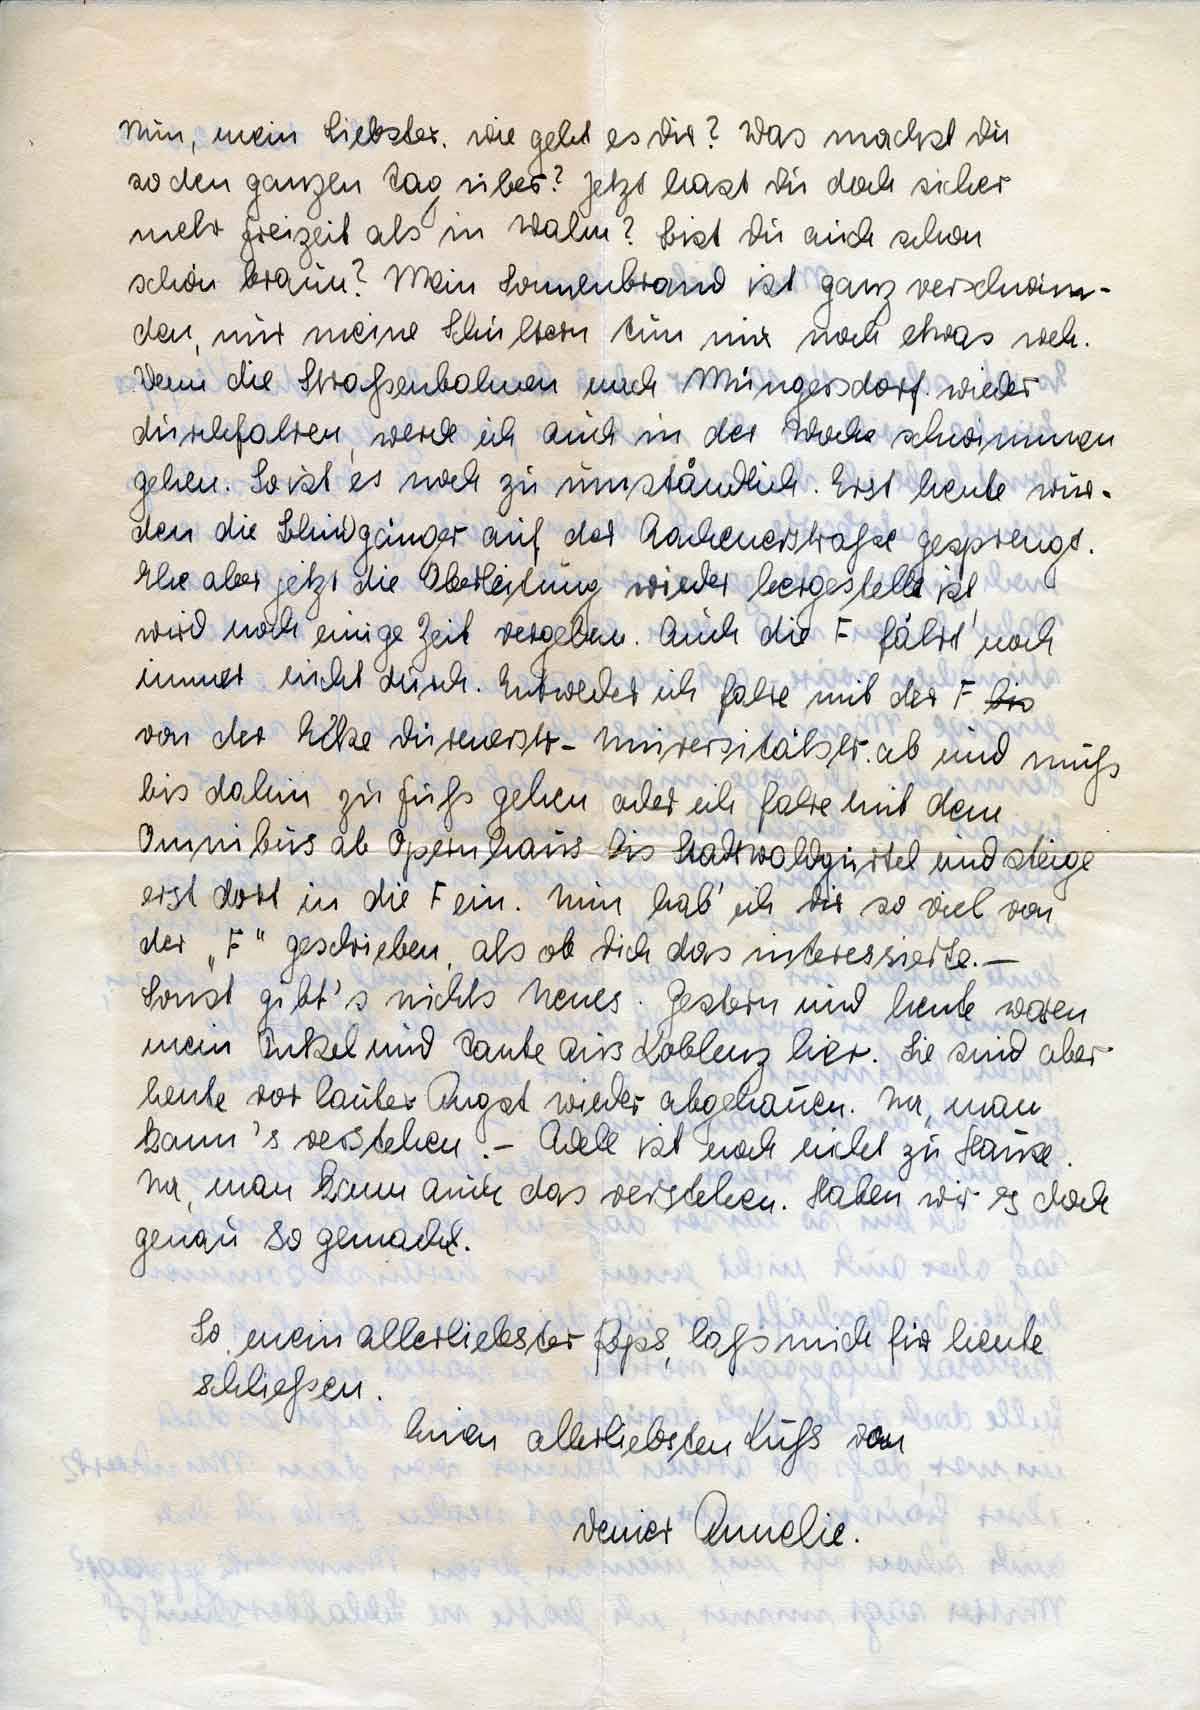 Nun, mein Liebster, wie geht es dir? Was machst du
so den ganzen Tag über? Jetzt hast du doch sicher
mehr Freizeit als in Wahn? Bist du auch schon
schön braun? Mein Sonnenbrand ist ganz verschwun-
den, nur meine Schultern tun mir noch etwas weh.
Wenn die Strassenbahnen nach Müngersdorf wieder
durchfahren, werde ich auch in der Woche schwimmen
gehen. So ist es noch zu umständlich. Erst heute wur-
den die Blindgänger auf der Aachenerstrasse gesprengt.
Ehe aber jetzt die Oberleitung wieder hergestellt ist,
wird noch einige Zeit vergehen. Auch die F fährt noch
immer nicht durch. Entweder ich fahre mit der F bis
von der Ecke Dürenerstr - Universitätsstr. ab und muss
bis dahin zu Fuss gehen oder ich fahre mit dem
Omnibus ab Opernhaus bis Stadtwaldgürtel und steige
erst dort in die F ein. Nun hab' ich dir so viel von
der „F" geschrieben, als ob dich das interessierte. —
Sonst gibt's nichts Neues. Gestern und heute waren
mein Onkel und Tante aus Koblenz hier. Sie sind aber
heute vor lauter Angst wieder abgehauen. Na, man
kann's verstehen. — Adele ist noch nicht zu Hause.
Na, man kann auch das verstehen. Haben wir es doch
genau so gemacht.
So, mein allerliebster Pops, lass mich für heute
schliessen.
Einen allerliebsten Kuss von
Deiner Annelie.